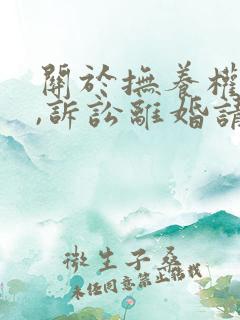 關於撫養權
,訴訟離婚請
微生子桑
未经同意禁止转载